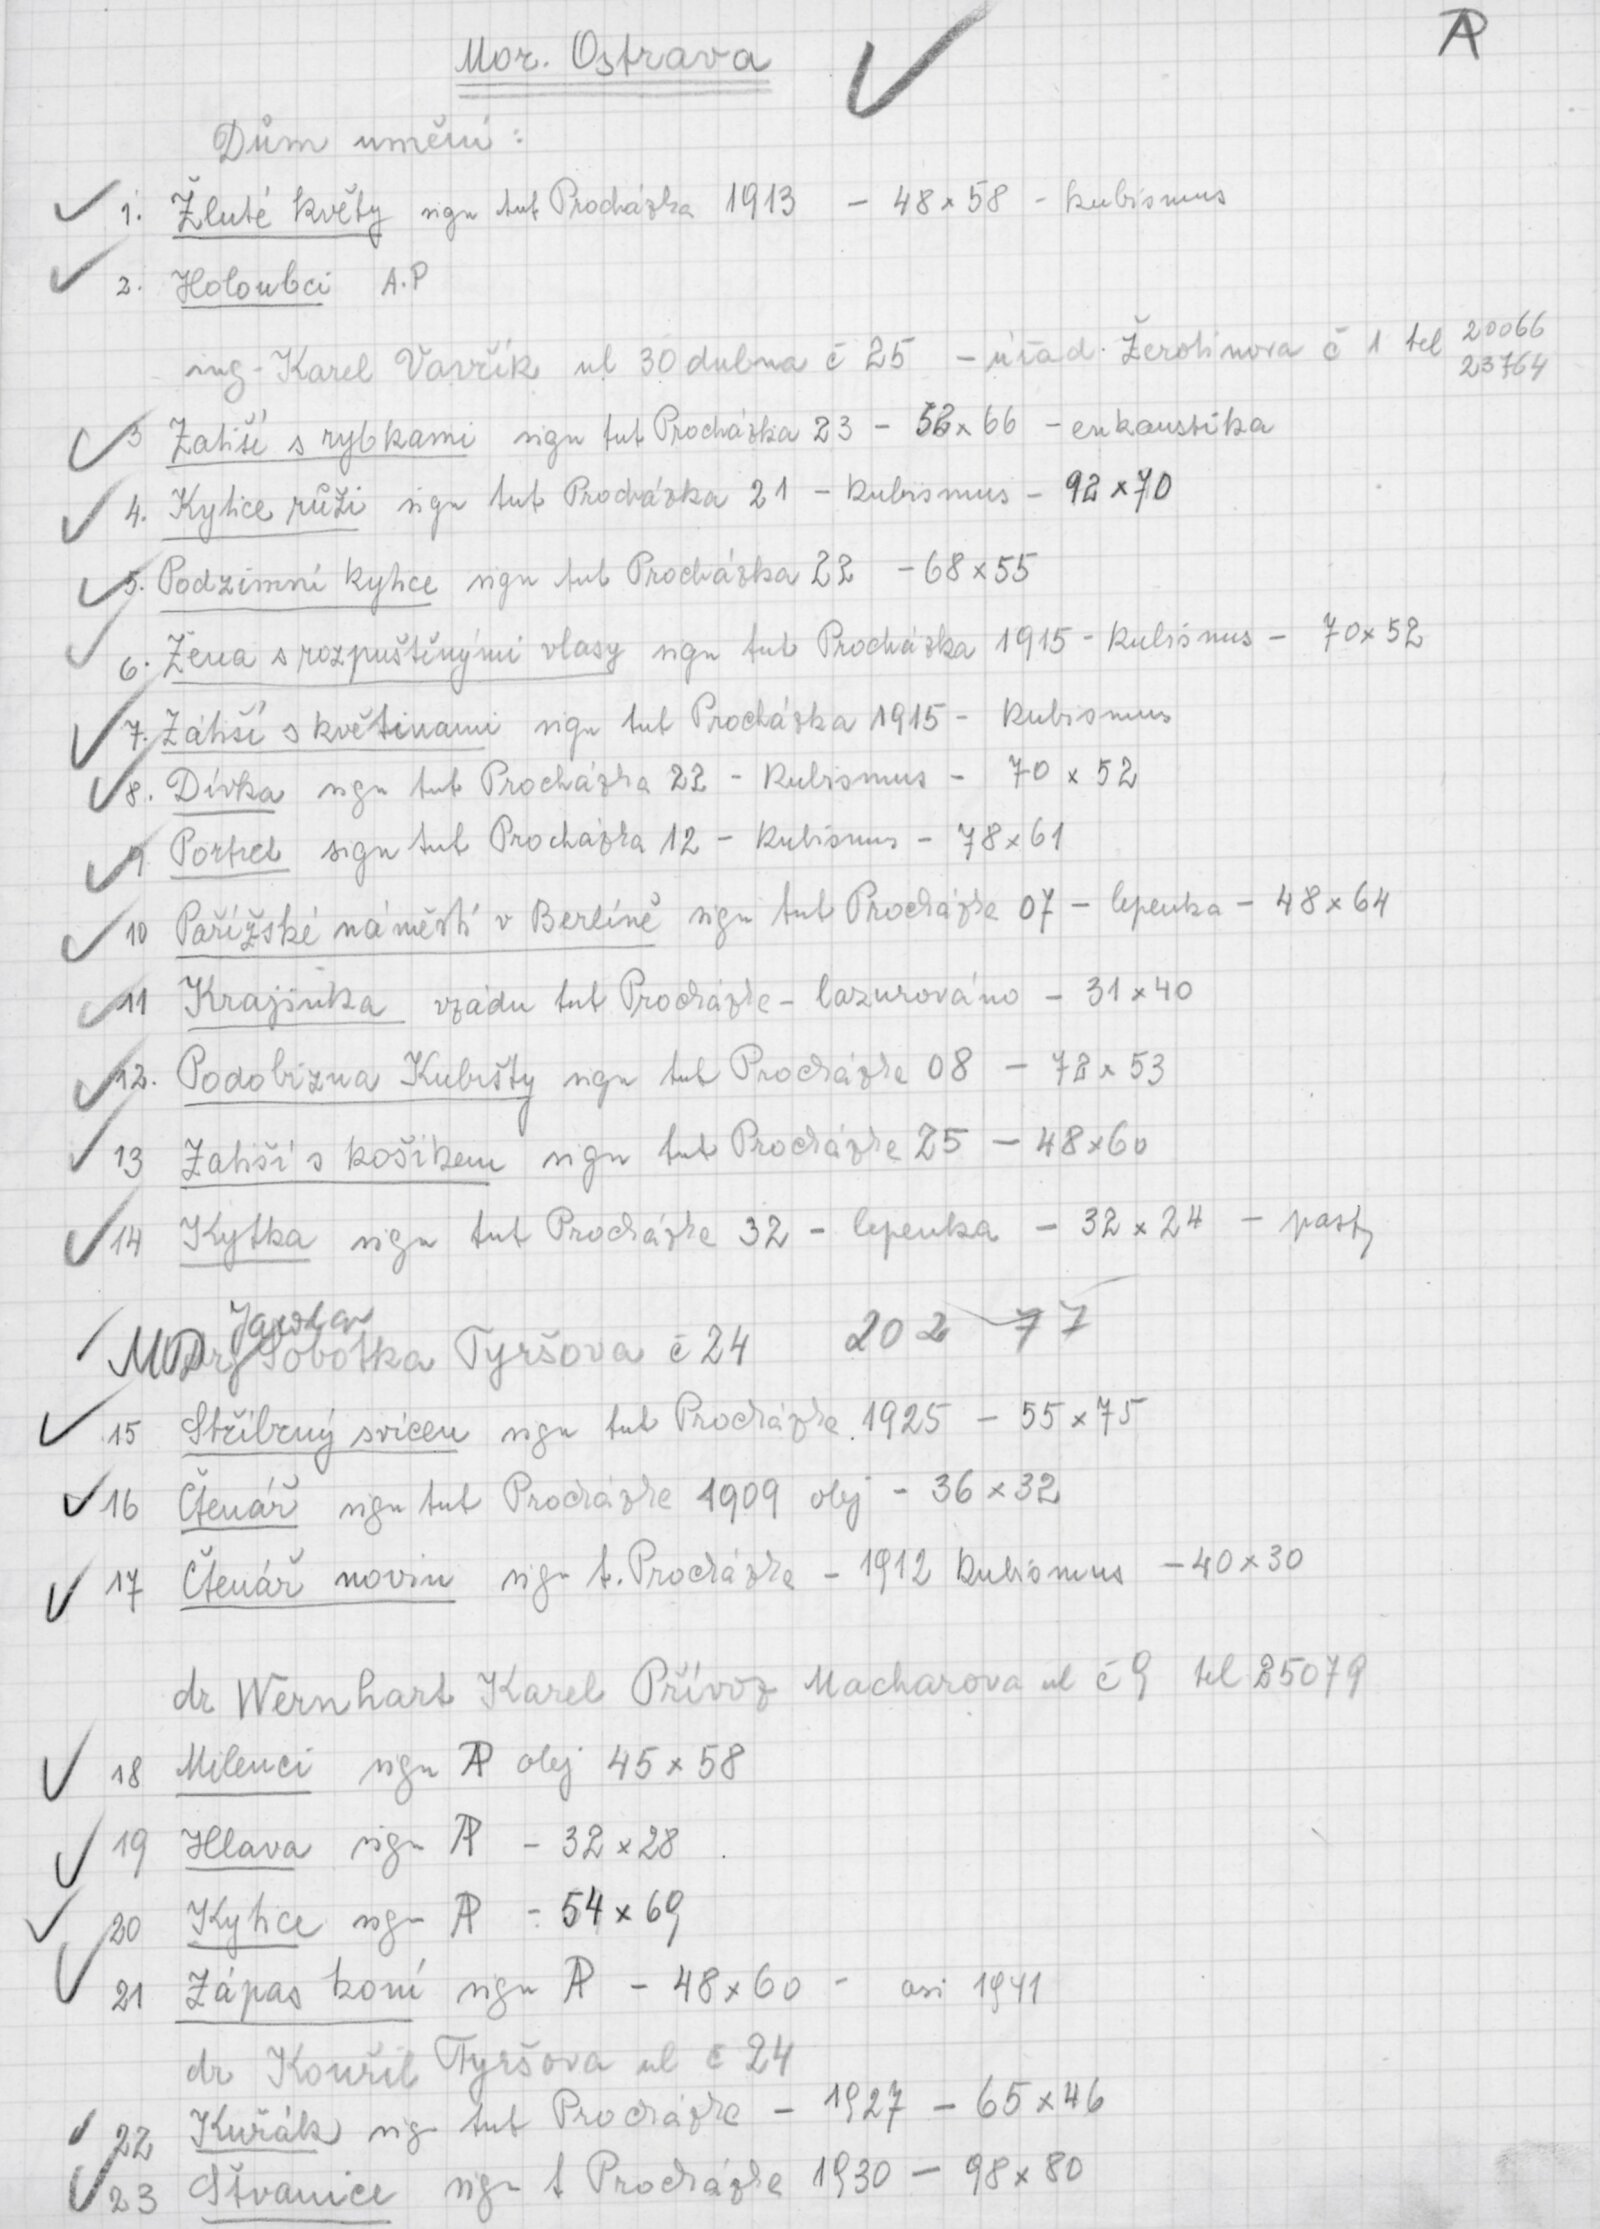 Mor. Ostrava
AP
Dům umění:
1. Žluté květy sign tut Procházka 1913 – 48×58 – kubismus
2. Holoubci A.P
ing. Karel Vavřík ul 30 dubna č 25 – úřad. Žerotinova č 1 tel 20066
23764
3 Zátiší s rybkami sign tut Procházka 23 – 52×66 – enkaustika
4. Kytice růží sign tut Procházka 21 – kubismus – 92×70
5. Podzimní kytice sign tut Procházka 22 – 68×55
6. Žena s rozpuštěnými vlasy sign tut Procházka 1915 – kubismus – 70×52
7. Zátiší s květinami sign tut Procházka 1915 – kubismus
8. Dívka sign tut Procházka 22 – kubismus – 70 × 52
9 Portret sign tut Procházka 12 – kubismus – 78×61
10 Pařížské náměstí v Berlíně sign tut Procházka 07 – lepenka – 48×64
11 Krajinka vzádu tut Procházka – lazurováno – 31×40
12. Podobizna Kubišty sign tut Procházka 08 – 72×53
13 Zátiší s košíkem sign tut Procházka 25 – 48×60
14 Kytka sign tut Procházka 32 – lepenka – 32×24 – pasty
Jaroslav
MUDr Sobotka Tyršova č 24 202 77
15 Stříbrný svícen sign tut Procházka 1925 – 55×75
16 Čtenář sign tut Procházka 1909 olej – 36×32
17 Čtenář novin sign t. Procházka – 1912 kubismus – 40×30
dr Wernhart Karel Přívoz Macharova ul č 9 tel 25079
18 Milenci sign AP olej 45×58
19 Hlava sign AP – 32×28
20 Kytice sign AP – 54×69
21 Zápas koní sign AP – 48×60 – asi 1941
dr Kouřil Tyršova ul č 24
22 Kuřák sig tut Procházka – 1927 – 65×46
23 Štvanice sign t Procházka 1930 – 98×80